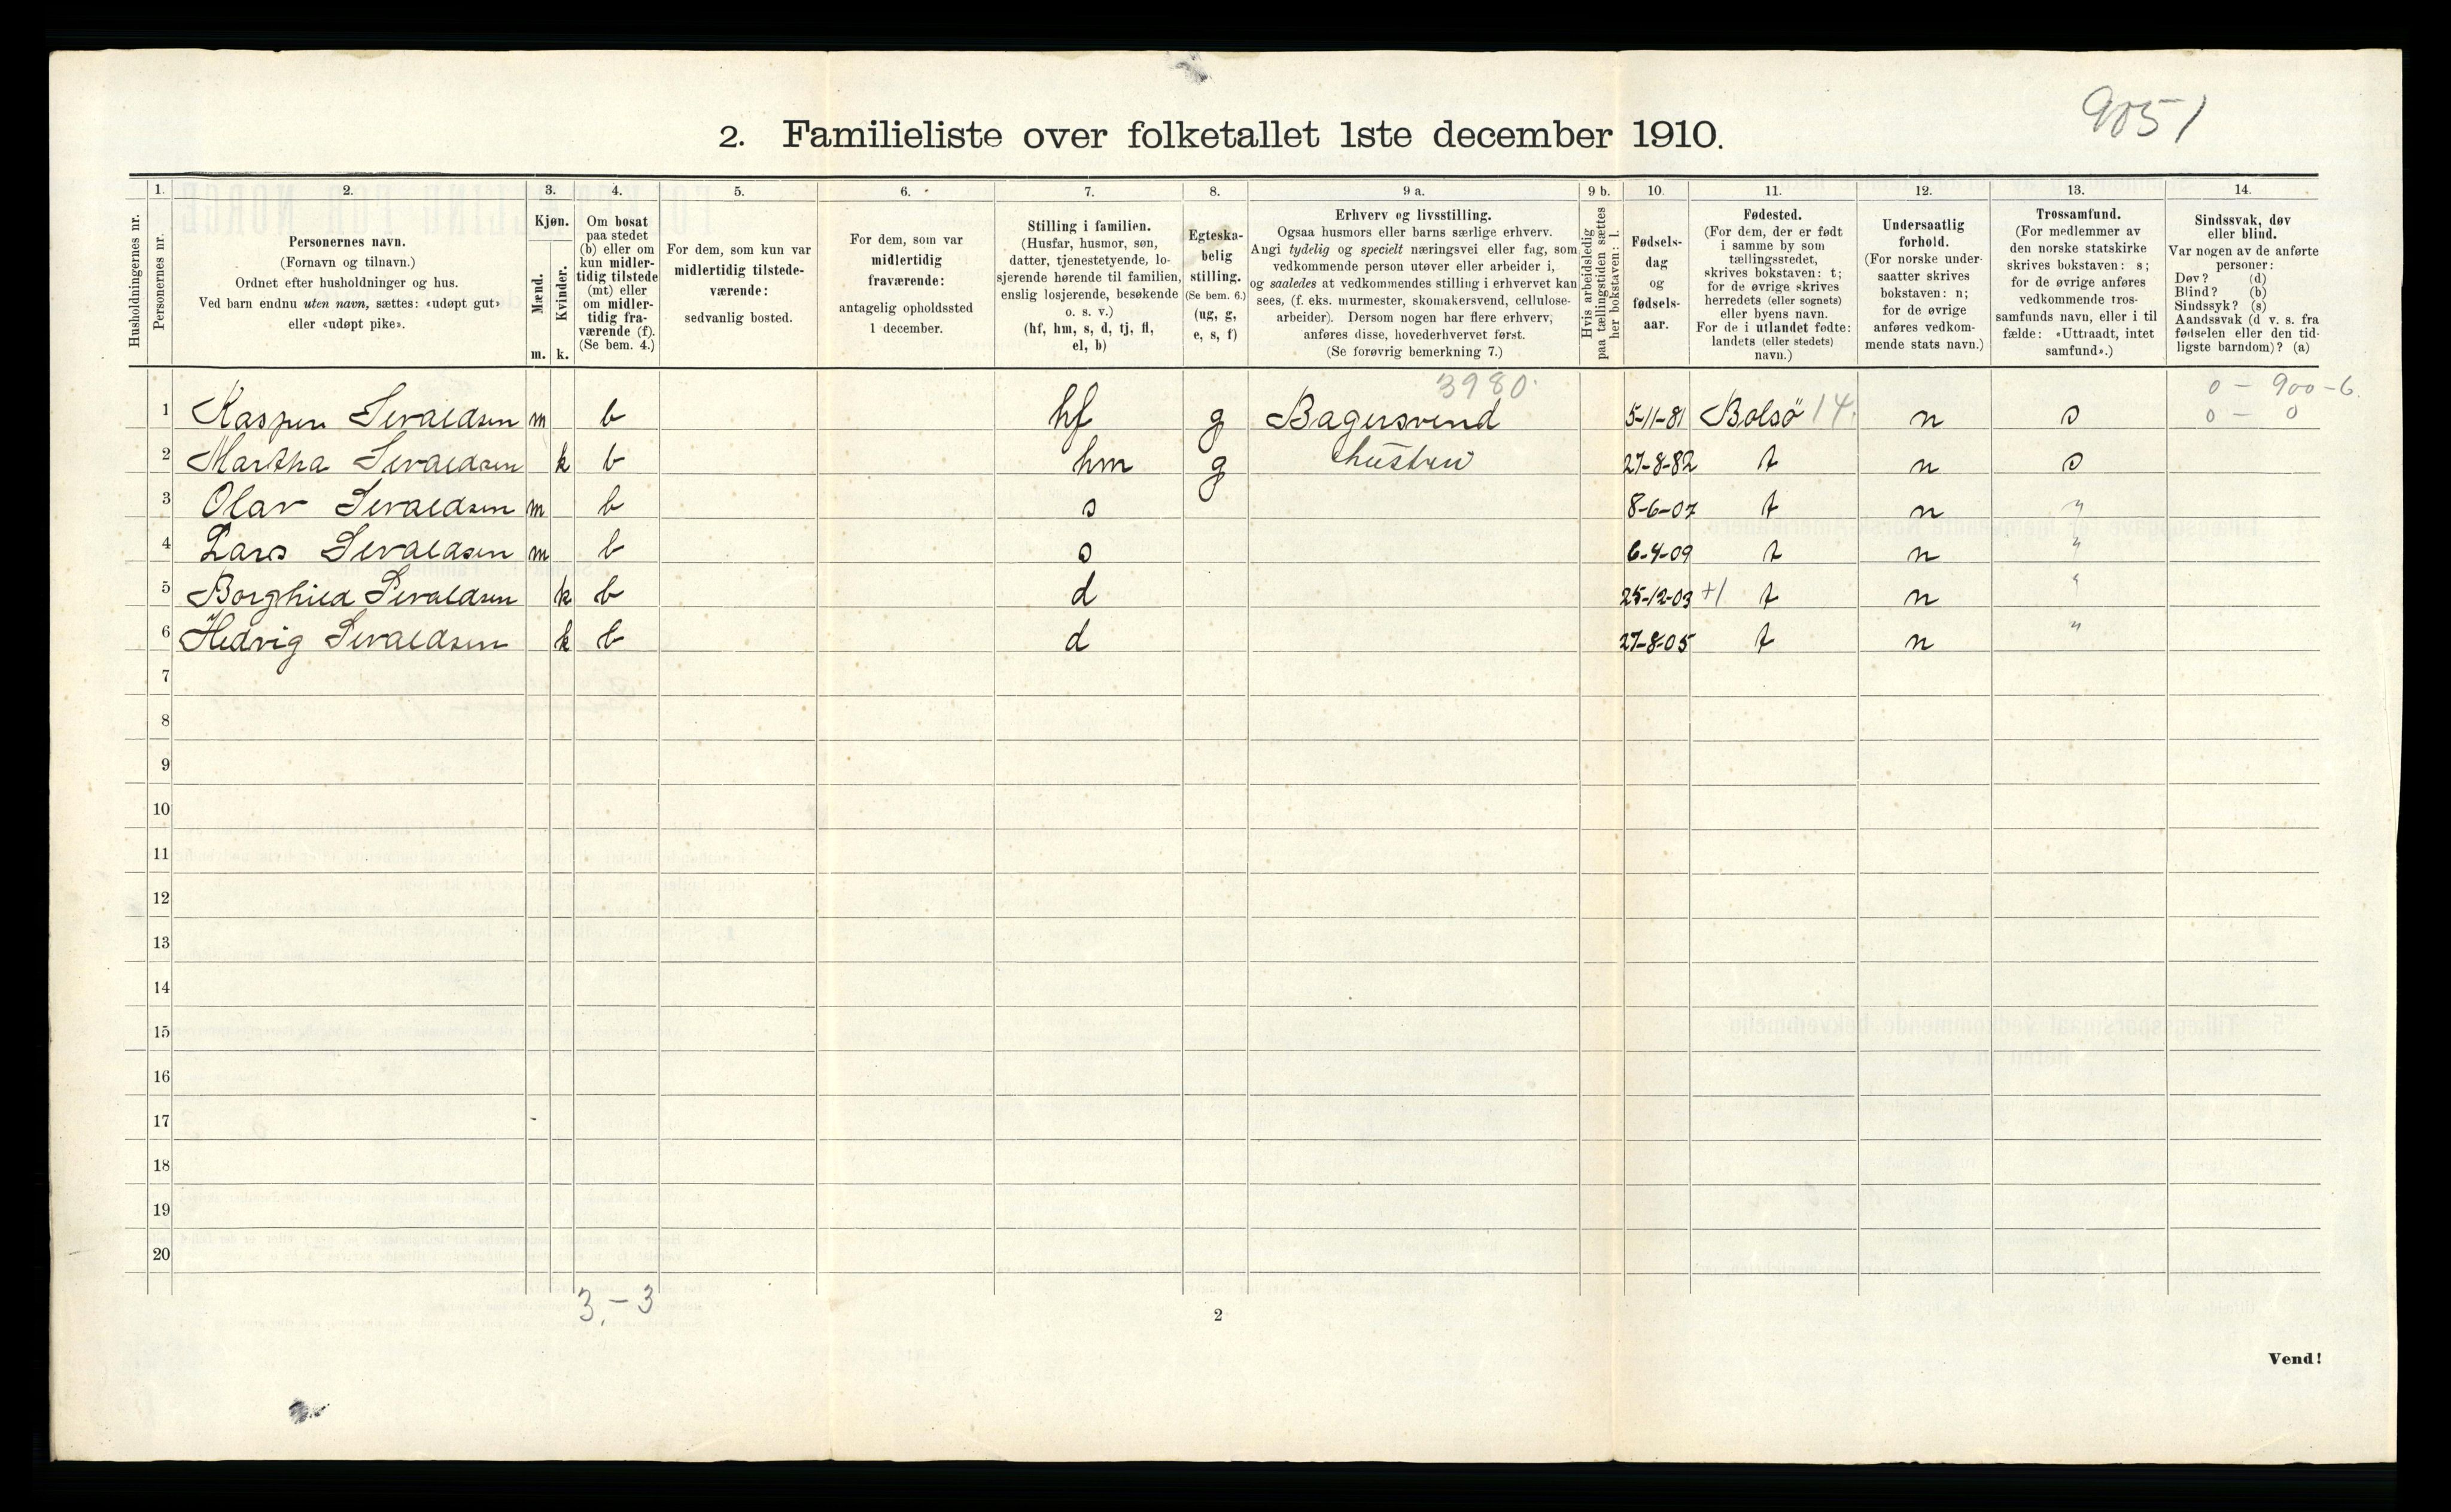 9051
2. Familieliste over folketallet 1ste december 1910.
Husholdningernes nr.
1.
Personernes nr.
2.
Personernes navn.
(Fornavn og tilnavn.)
Ordnet efter husholdninger og hus.
Ved barn endnu uten navn, sættes: «udøpt gut»
eller «udøpt pike».
3.
Kjøn.
Mænd.
Kvinder.
m. k.
4.
Om bosat
paa stedet
(b) eller om
kun midler-
tidig tilstede
(mt) eller
om midler-
tidig fra-
værende (f).
(Se bem. 4.)
5.
For dem, som kun var
midlertidig tilstede-
værende:
sedvanlig bosted.
6.
For dem, som var
midlertidig
fraværende:
antagelig opholdssted
1 december.
7.
Stilling i familien.
(Husfar, husmor, søn,
datter, tjenestetyende, lo-
sjerende hørende til familien,
enslig losjerende, besøkende
o. s. v.)
(hf, hm, s, d, tj, fl,
el, b)
8.
Egteska-
belig
stilling.
(Se bem. 6.)
(ug, g,
e, s, f)
9 a.
Erhverv og livsstilling.
Ogsaa husmors eller barns særlige erhverv.
Angi tydelig og specielt næringsvei eller fag, som
vedkommende person utøver eller arbeider i,
og saaledes at vedkommendes stilling i erhvervet kan
sees, (f. eks. murmester, skomakersvend, cellulose-
arbeider). Dersom nogen har flere erhverv,
anføres disse, hovederhvervet først.
(Se forøvrig bemerkning 7.)
9 b.
Hvis arbeidsledig
paa tællingstiden sættes
her bokstaven: l.
10.
Fødsels-
dag
og
fødsels-
aar.
11.
Fødested.
(For dem, der er født
i samme by som
tællingsstedet,
skrives bokstaven: t;
for de øvrige skrives
herredets (eller sognets)
eller byens navn.
For de i utlandet fødte:
landets (eller stedets)
navn.)
12.
Undersaatlig
forhold.
(For norske under-
saatter skrives
bokstaven: n;
for de øvrige
anføres vedkom-
mende stats navn.)
13.
Trossamfund.
(For medlemmer av
den norske statskirke
skrives bokstaven: s;
for de øvrige anføres
vedkommende tros-
samfunds navn, eller i til
fælde: «Uttraadt, intet
samfund».)
14.
Sindssvak, døv
eller blind.
Var nogen av de anførte
personer:
Døv? (d)
Blind? (b)
Sindssyk? (s)
Aandssvak (d v. s. fra
fødselen eller den tid-
ligste barndom)? (a)
3980 0 - 900-6
1 Kaspen Sevaldsen m b hf g Bagersvend 5-11-81 Bolsö 14. n s 0 - 0
2 Martha Sevaldsen k b hm g hustru 27-8-82 t n s
3 Olav Sevaldsen m b s 8-6-07 t n "
4 Lars Sevaldsen m b s 6-4-09 t n "
5 Borghild Sevaldsen k b d 25-12-03 +1 t n "
6 Hedvig Sevaldsen k b d 27-8-05 t n "
7
8
9
10
11
12
13
14
15
16
17
18
19
20
3 - 3
2
Vend!